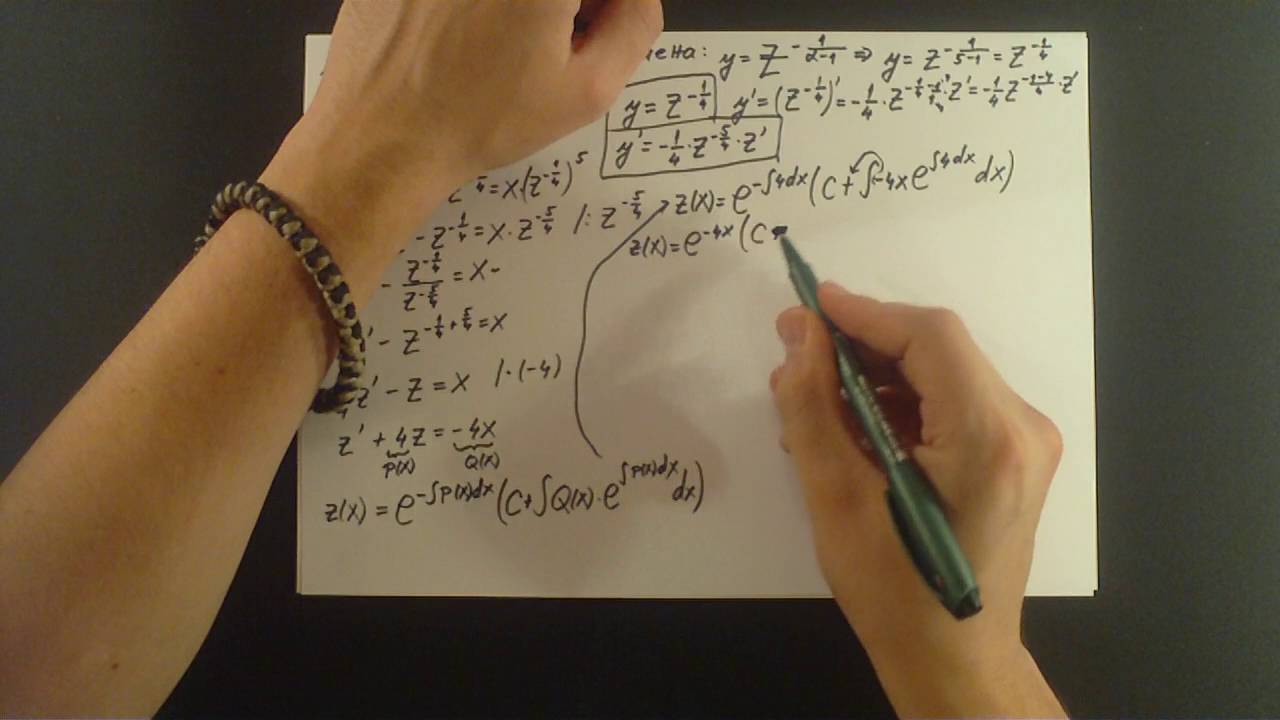 y = z^{-\frac{1}{2-1}} ⇒ y = z^{-\frac{1}{5-1}} = z^{-\frac{1}{4}}
y = z^{-\frac{1}{4}}
y' = (z^{-\frac{1}{4}})' = -\frac{1}{4} · z^{-\frac{1}{4}-\frac{1}{1}} · z' = -\frac{1}{4} z^{\frac{-1-4}{4}} · z'
y' = -\frac{1}{4} · z^{-\frac{5}{4}} · z'
= x · (z^{-\frac{1}{4}})^5
- z^{-\frac{1}{4}} = x · z^{-\frac{5}{4}} /: z^{-\frac{5}{4}}
- \frac{z^{-\frac{1}{4}}}{z^{-\frac{5}{4}}} = x
- z^{-\frac{1}{4}+\frac{5}{4}} = x
z' - z = x /·(-4)
z' + 4z = -4x
P(x) Q(x)
z(x) = e^{-∫P(x)dx} (C + ∫Q(x) · e^{∫P(x)dx} dx)
z(x) = e^{-∫4dx} (C + ∫-4x e^{∫4dx} dx)
z(x) = e^{-4x} (C -